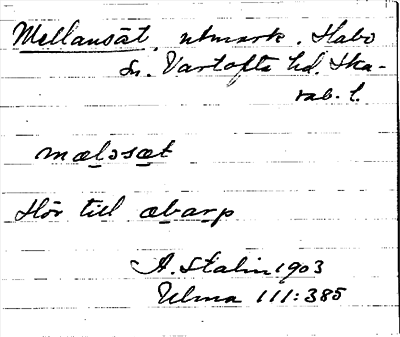 Mellansät, utmark. Habo
sn. Vartofta hd. Ska-
rab. l.
mæləsæt
Hör till abarp
A. Stalin 1903
Ulma 111:385